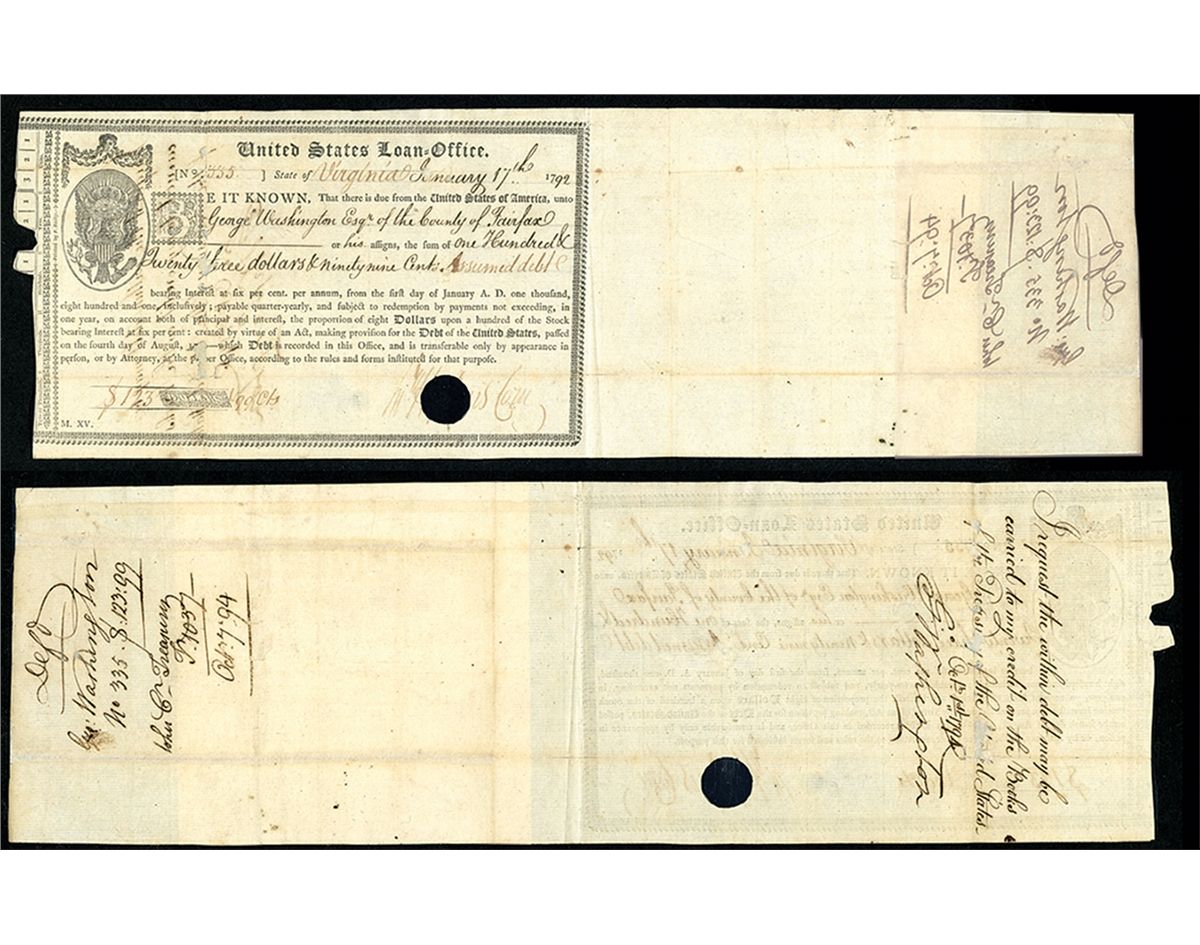 United States Loan=Office.
[No 335 ] State of Virginia January 17th 1792
BE IT KNOWN, That there is due from the United States of America, unto
George Washington Esqr. of the County of Fairfax
or his assigns, the sum of one Hundred &
Twenty three dollars & ninety nine Cents Assumed debt
bearing Interest at six per cent. per annum, from the first day of January A. D. one thousand,
eight hundred and one, inclusively; payable quarter-yearly, and subject to redemption by payments not exceeding, in
one year, on account both of principal and interest, the proportion of eight Dollars upon a hundred of the Stock
bearing Interest at six per cent: created by virtue of an Act, making provision for the Debt of the United States, passed
on the fourth day of August, which Debt is recorded in this Office, and is transferable only by appearance in
person, or by Attorney, at the Office, according to the rules and forms instituted for that purpose.
$ 123 99 Cts
M. XV.
Defd
Geo: Washington
No 335. $. 123:99
John Cr Treasury
F. 1037
Octr. 7. 94
I request the within debt may be
carried to my credit on the Books
of the Treasury of the United States
Octr. 1st 1794
Go: Washington